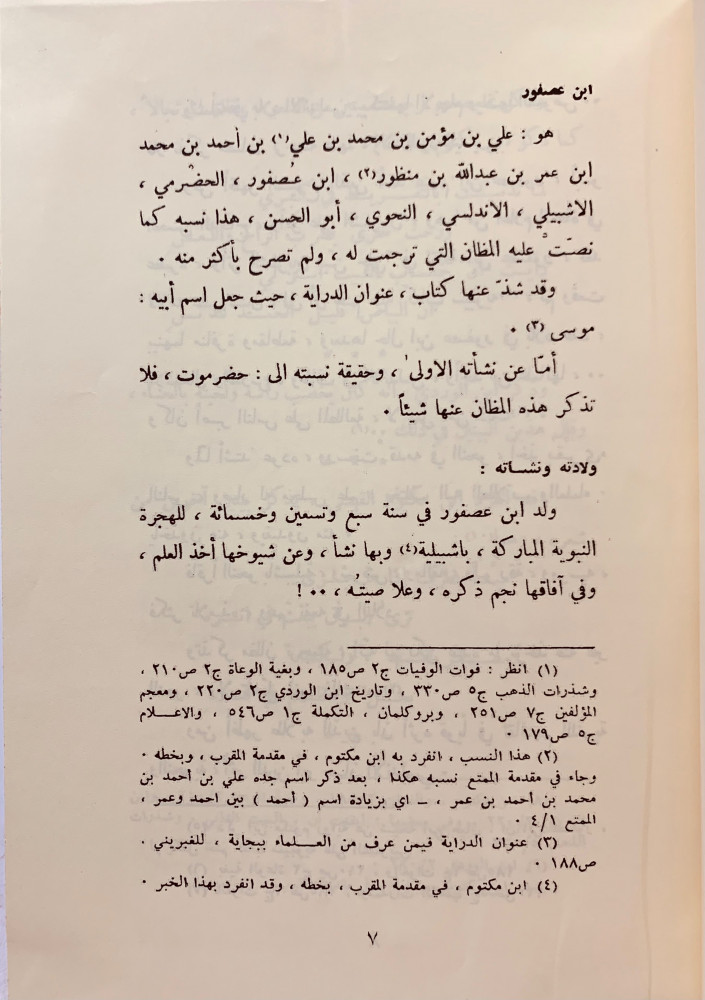 ابن عصفور
هو : علي بن مؤمن بن محمد بن علي(١) بن أحمد بن محمد
ابن عمر بن عبدالله بن منظور(٢) ، ابن عُصفور ، الحضْرمي ،
الاشبيلي ، الاندلسي ، النحوي ، أبو الحسن ، هذا نسبه كما
نصّتْ عليه المظان التي ترجمت له ، ولم تصرح بأكثر منه ٠
وقد شذّ عنها كتاب ، عنوان الدراية ، حيث جعل اسم أبيه :
موسى (٣) ٠
أمّا عن نشأته الاولى ، وحقيقة نسبته الى : حضرموت ، فلا
تذكر هذه المظان عنها شيئاً ٠
ولادته ونشــاته :
ولد ابن عصفور في سنة سبع وتسعين وخمسمائة ، للهجرة
النبوية المباركة ، باشبيلية(٤) وبها نشأ ، وعن شيوخها أخذ العلم ،
وفي آفاقها نجم ذكره ، وعلا صيتُه ، ٠٠ !
(١) انظر : فوات الوفيات ج٢ ص١٨٥ ، وبغية الوعاة ج٢ ص٢١٠ ،
وشذرات الذهب ج٥ ص٣٣٠ ، وتاريخ ابن الوردي ج٢ ص٢٢٠ ، ومعجم
المؤلفين ج٧ ص٢٥١ ، وبروكلمان ، التكملة ج١ ص٥٤٦ ، والاعــلام
ج٥ ص١٧٩ ٠
(٢) هذا النسب ، انفرد به ابن مكتوم ، في مقدمة المقرب ، وبخطه ٠
وجاء في مقدمة الممتع نسبه هكذا ، بعد ذكر اسم جده علي بن أحمد بن
محمد بن أحمد بن عمر ، ــ اي بزيادة اسم ( أحمد ) بين احمد وعمر ،
الممتع ٤/١ ٠
(٣) عنوان الدراية فيمن عرف من العــــلماء ببجاية ، للغبريني ٠
ص١٨٨ ٠
(٤) ابن مكتوم ، في مقدمة المقرب ، بخطه ، وقد انفرد بهذا الخبر ٠
٧